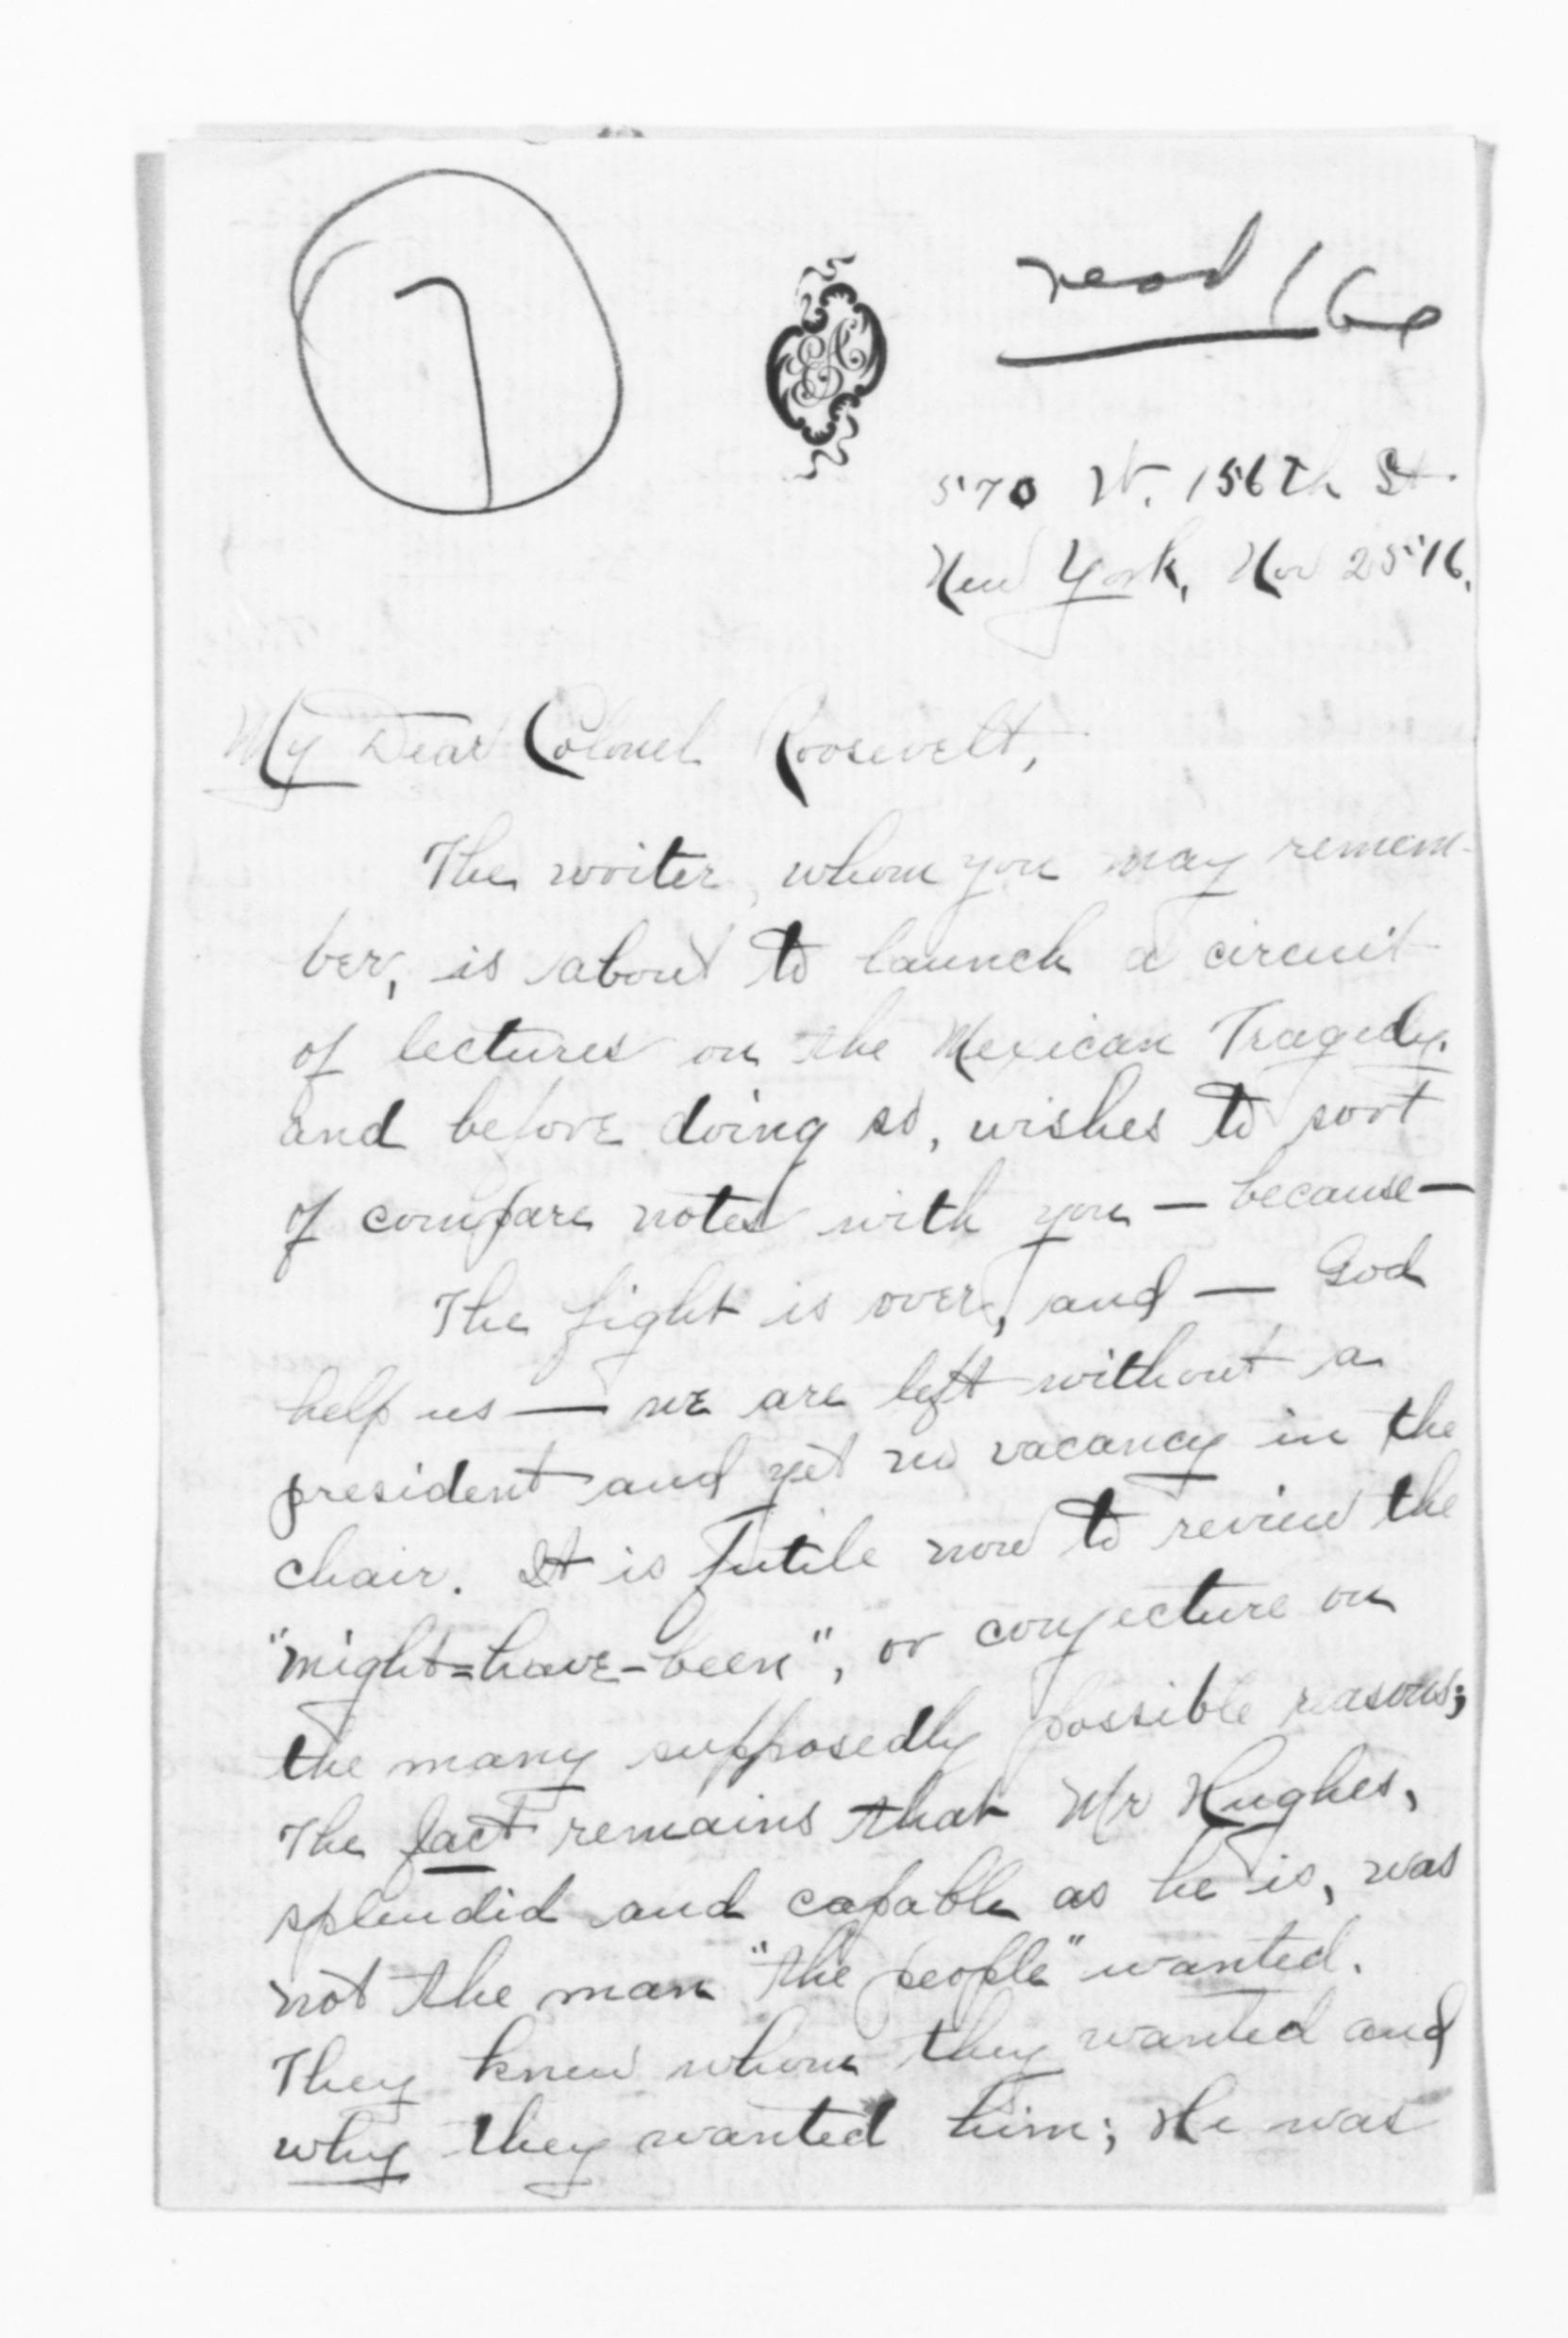 7
read
570 W. 156th St.
New York, Nov 25 '16.
My Dear Colonel Roosevelt,
The writer, whom you may remem-
ber, is about to launch a circuit
of lectures on the Mexican Tragedy.
and before doing so, wishes to sort
of compare notes with you — because —
The fight is over, and — God
help us — we are left without a
president and yet no vacancy in the
chair. It is futile now to review the
"might=have-been", or conjecture on
the many supposedly possible reasons;
The fact remains that Mr Hughes,
splendid and capable as he is, was
not the man "the people" wanted.
They knew whom they wanted and
why they wanted him; He was